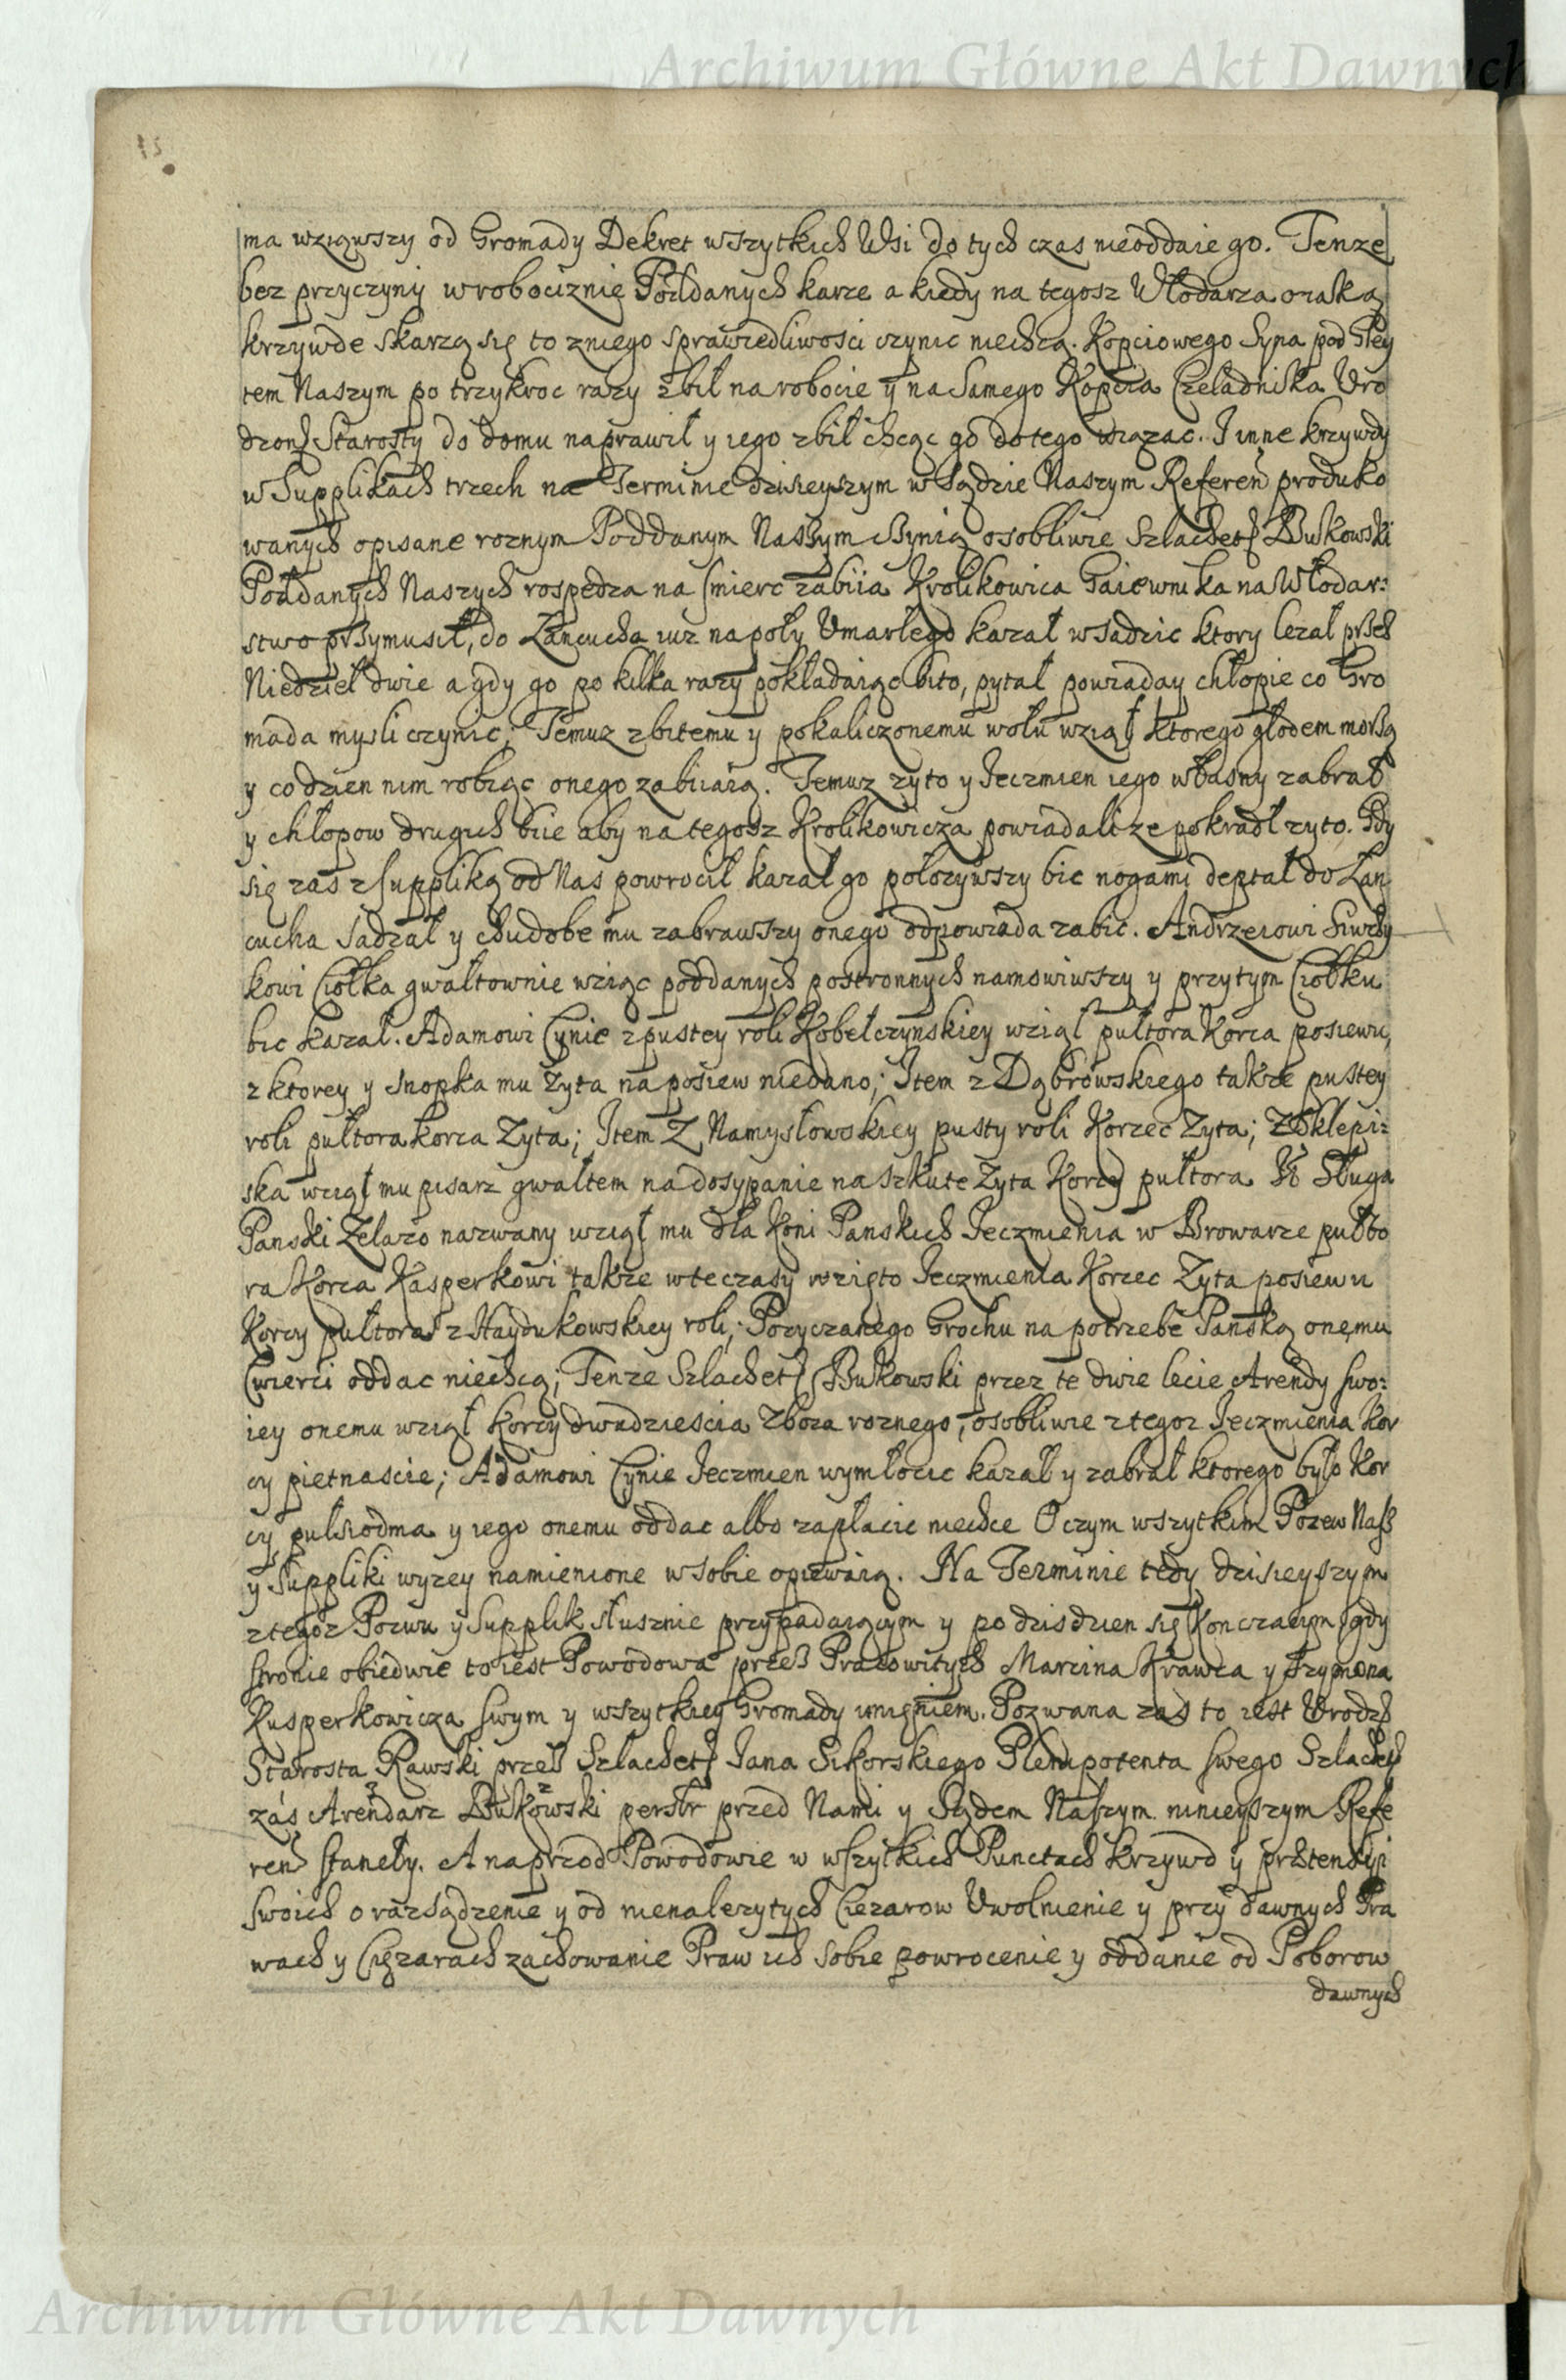 Archiwum Główne Akt Dawnych
15
ma wziąwszy od Gromady Dekret wszytkich Wsi do tych czas nieoddaie go. Tenze
bez przyczyny w robociznie Poddanych karze a kiedy na tegosz Włodarza o iaką
krzywde skarzą się to z niego sprawiedliwosci czynic niechcą. Kopciowego Syna pod Gley
tem Naszym po trzykroc razy zbił na robocie y na Samego Kopcia Czeladnika Uro
dzon Starosty do domu naprawił y iego zbił chcąc go do tego wiązac. I inne krzywdy
w Supplikach trzech na Terminie dzisieyszym w Sądzie Naszym Referen produko
wanych opisane roznym Poddanym Naszym czynią osobliwie Szlachet Bukowski
Poddanych Naszych rospędza na smierc zabiia Krolikowica Gaiewnika na Włodar:
stwo przymusił, do Łancucha iuz napoły Umarłego kazał wsadzic ktory lezał przez
Niedziel dwie a gdy go po kilka razy pokładaiąc bito, pytał powiaday chłopie co Gro
mada mysli czynic; Temuz zbitemu y pokaliczonemu wołu wziął ktorego głodem morzą
y codzien nim robiąc onego zabiiaią. Temuz zyto y Ieczmien iego własny zabrał
y chłopow drugich biie aby na tegosz Krolikowicza powiadali ze pokradł zyto. Gdy
się zas z suppliką od Nas powrocił kazał go połozywszy bic nogami deptał do Łan
cucha sadzał y chudobe mu zabrawszy onego odpowiada zabic. Andrzeiowi Siwczy
kowi Ciołka gwałtownie wziąc poddanych postronnych namowiwszy y przytym Ciołku
bic kazał. Adamowi Cynie z pustey roli Kobełczynskiey wziął pułtora Korca posiewu,
z ktorey y snopka mu zyta na posiew niedano; Item z Dąbrowskiego takze pustey
roli pułtora korca Zyta; Item Z Namysłowskiey pusty roli Korzec Zyta; Z Sklepi:
ska wziął mu pisarz gwałtem na dosypanie na szkute Zyta Korcy pułtora Sługa
Panski Zelazo nazwany wziął mu dla Koni Panskich Ieczmienia w Browarze pułto
ra Korca Kasperkowi takze wteczasy wzięto Ieczmienia Korzec Zyta posiewu
Korcy pułtora z Haydukowskiey roli; Pozyczanego Grochu na potrzebe Panską onemu
Cwierci oddac niechcą; Tenze Szlachet Bukowski przez te dwie lecie Arendy swo:
iey onemu wziął Korcy dwadziescia Zboza roznego, osobliwie z tegoz Ieczmienia Kor
cy piętnascie; Adamowi Cynie Ieczmien wymłocic kazał y zabrał ktorego było Kor
cy pułsiodma y iego onemu oddac albo zapłacic niechce O czym wszytkim Pozew Nasz
y Suppliki wyzey namienione w sobie opiewaią. Na Terminie tedy dzisieyszym
z tegoz Pozwu y Supplik słusznie przypadaiącym y po dzis dzien się Konczącym gdy
stronie obiedwie to iest Powodowa przez Pracowitych Marcina Krawca y Szymona
Kusperkowicza swym y wszytkiey Gromady imieniem. Pozwana zas to iest Urodz
Starosta Rawski przez Szlachet Iana Sikorskiego Plenipotenta swego Szlachet
zás Arendarz Bukowski perstr przed Nami y Sądem Naszym ninieyszym Refe
ren stanęły. A naprzod Powodowie w wszytkich Punctach krzywd y prætensyi
swoich o rozsądzenie y od nienalezytych Cięzarow Uwolnienie y przy dawnych Pra
wach y Cięzarach zachowanie Praw ich sobie powrocenie y oddanie od Poborow
dawnych
Archiwum Główne Akt Dawnych